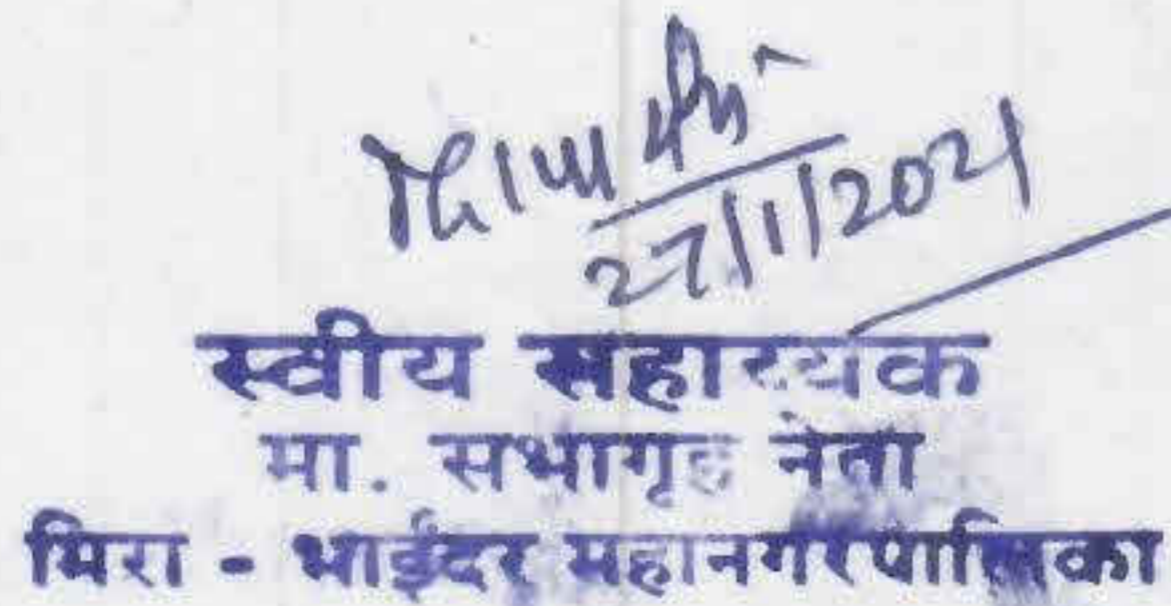 27/1/2021
स्वीय सहाय्यक
मा. सभागृह नेता
मिरा - भाईंदर महानगरपालिका